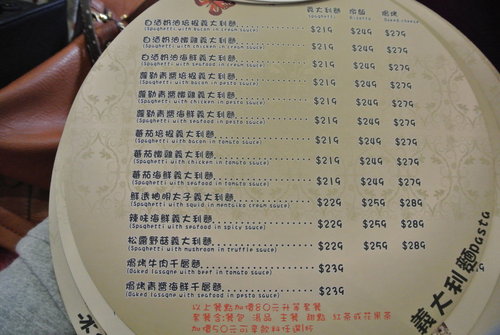 義大利麵 燉飯 焗烤
(Spaghetti) (Risotto) (Baked cheese)
白酒奶油培根義大利麵 $219 $249 $279
(Spaghetti with bacon in cream sauce)
白酒奶油嫩雞義大利麵 $219 $249 $279
(Spaghetti with chicken in cream sauce)
白酒奶油海鮮義大利麵 $219 $249 $279
(Spaghetti with seafood in cream sauce)
蘿勒青醬培根義大利麵 $219 $249 $279
(Spaghetti with bacon in pesto sauce)
蘿勒青醬嫩雞義大利麵 $219 $249 $279
(Spaghetti with chicken in pesto sauce)
蘿勒青醬海鮮義大利麵 $219 $249 $279
(Spaghetti with seafood in pesto sauce)
蕃茄培根義大利麵 $219 $249 $279
(Spaghetti with bacon in tomato sauce)
蕃茄嫩雞義大利麵 $219 $249 $279
(Spaghetti with chicken in tomato sauce)
蕃茄海鮮義大利麵 $219 $249 $279
(Spaghetti with seafood in tomato sauce)
鮮透抽明太子義大利麵 $229 $259 $289
(Spaghetti with squid in mentaiko cream sauce)
辣味海鮮義大利麵 $229 $259 $289
(Spaghetti with seafood in spicy sauce)
松露野菇義大利麵 $229 $259 $289
(Spaghetti with mushroom in truffle sauce)
焗烤牛肉千層麵 $239
(Baked lasagne with beef in tomato sauce)
焗烤青醬海鮮千層麵 $239
(Baked lasagne with seafood in pesto sauce)
以上餐點加價80元升等套餐
套餐含:餐包 湯品 主餐 甜點 紅茶或花果茶
加價50元可享飲料任選杯
義大利麵pasta